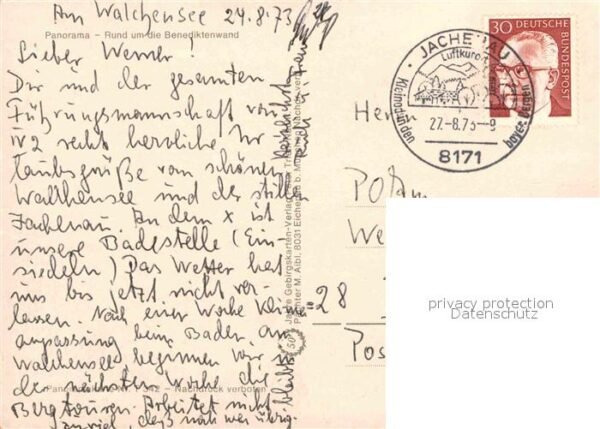 Am Walchensee 24.8.73
Panorama – Rund um die Benediktenwand
Lieber Werner!
Dir und der gesamten
Führungsmannschaft von
IV2 recht herzliche Ur
laubsgrüße vom schönen
Walchensee und der stillen
Jachenau. An dem x ist
unsere Badestelle (Ein-
siedeln) Das Wetter hat
uns bis jetzt nicht ver-
lassen. Nach einer Woche Klima
anpassung beim Baden am
Walchensee, beginnen wir
der nächsten Woche die
Bergtouren. Arbeitet nicht
zuviel, daß noch was übrig
bleibt
Nachdruck verboten
Jahre Gebirgskarten-Verlag
M. Aibl, 8031 Eichenau b. München
Her
POAm
We
28
Pos
JACHENAU
Luftkurort
Kleinod in den
bayer. Bergen
27.-8.73-9
8171
30 DEUTSCHE
BUNDESPOST
privacy protection
Datenschutz